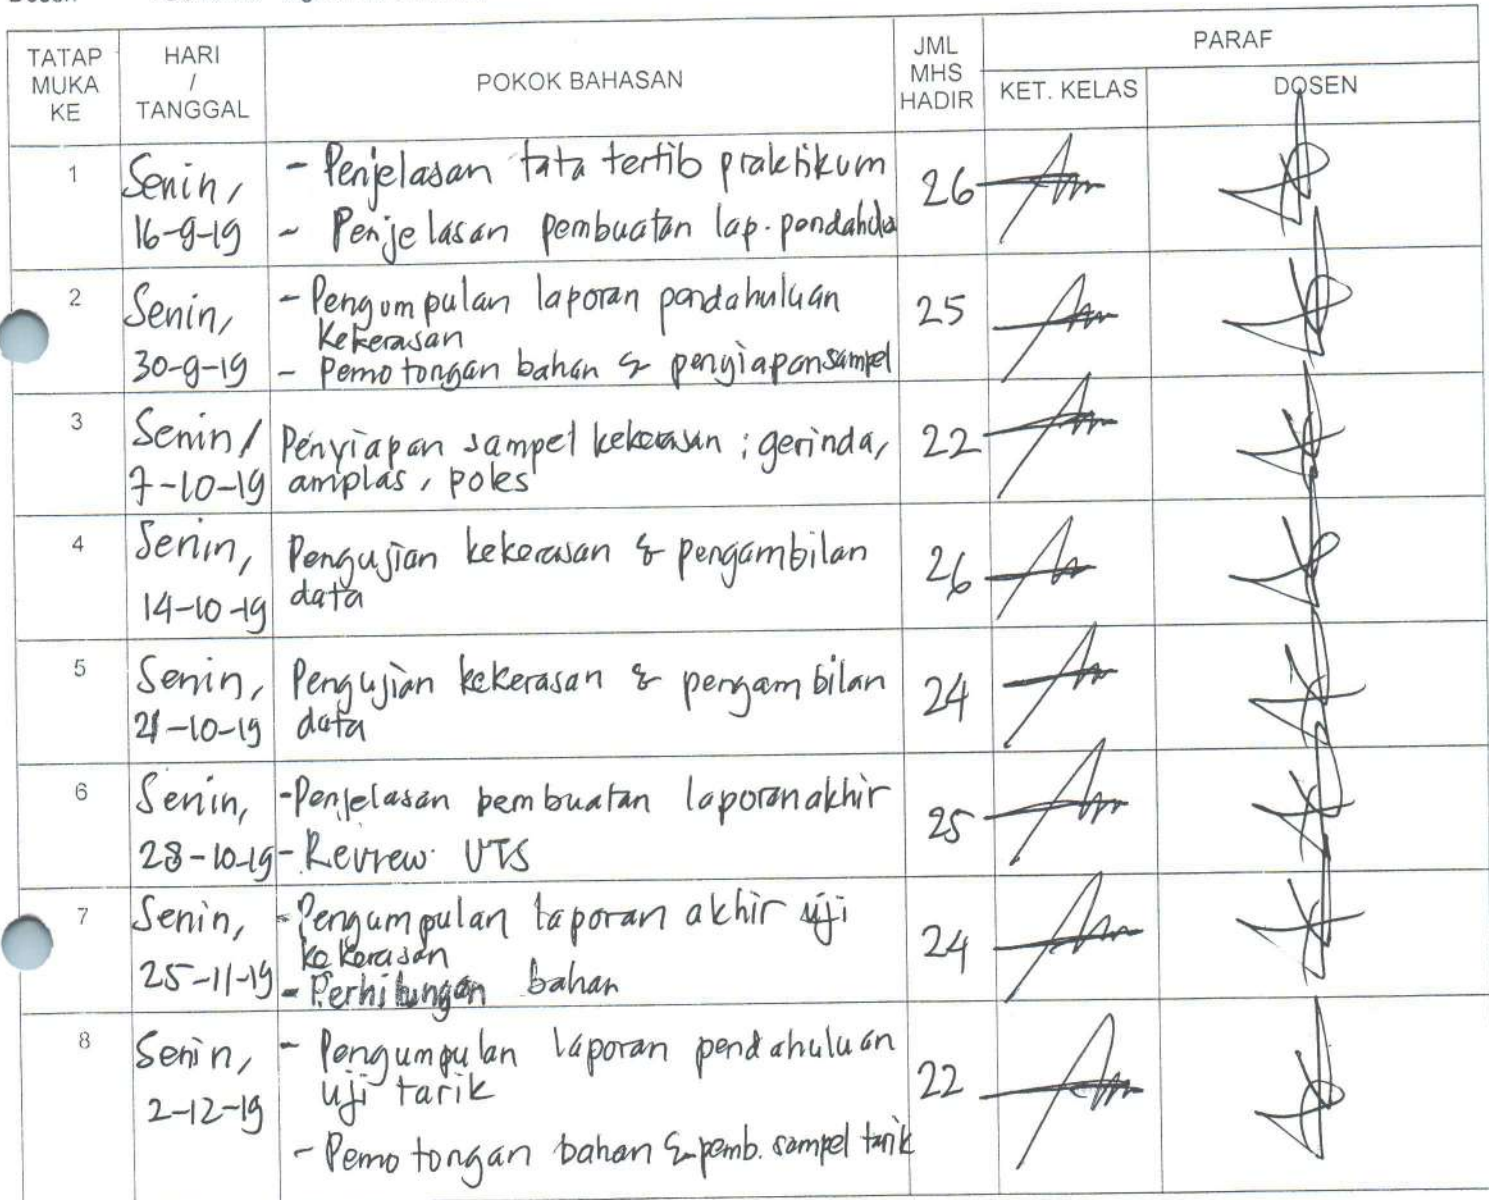 TATAP MUKA KE
HARI / TANGGAL
POKOK BAHASAN
JML MHS HADIR
PARAF
KET. KELAS
DOSEN
1
Senin,
16-9-19
- Penjelasan tata tertib praktikum
- Penjelasan pembuatan lap. pendahulu
26
2
Senin,
30-9-19
- Pengumpulan laporan pendahuluan
kekerasan
- Pemotongan bahan & penyiapan sampel
25
3
Senin/
7-10-19
Penyiapan sampel kekerasan ; gerinda,
amplas, poles
22
4
Senin,
14-10-19
Pengujian kekerasan & pengambilan
data
26
5
Senin,
21-10-19
Pengujian kekerasan & pengambilan
data
24
6
Senin,
28-10-19
- Penjelasan pembuatan laporan akhir
- Review UTS
25
7
Senin,
25-11-19
- Pengumpulan laporan akhir uji
kekerasan
- Perhitungan bahan
24
8
Senin,
2-12-19
- Pengumpulan laporan pendahuluan
uji tarik
- Pemotongan bahan & pemb. sampel tarik
22